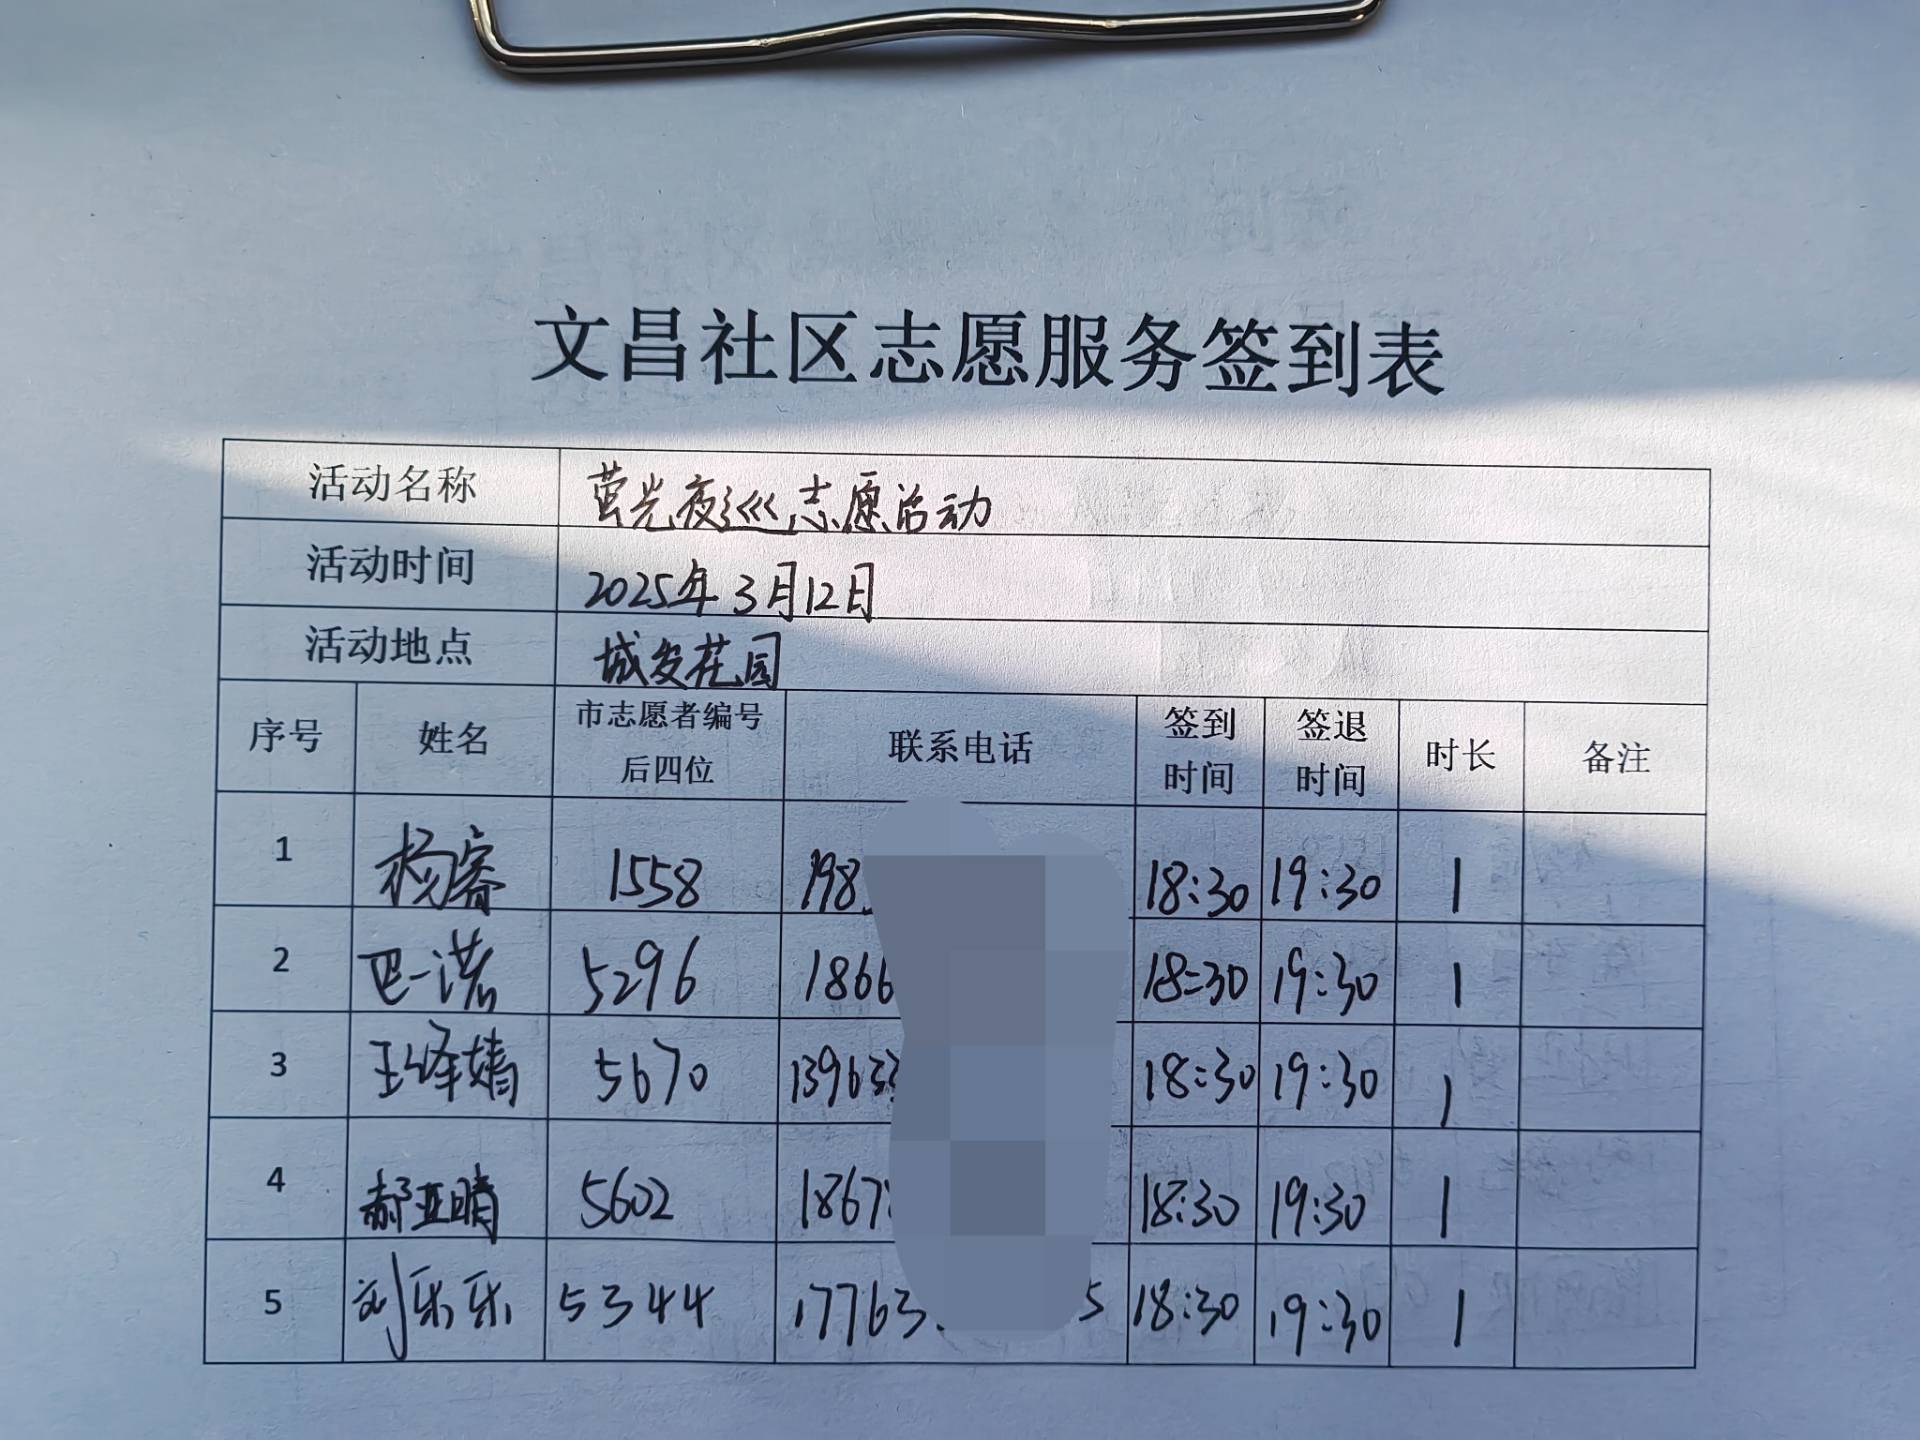 文昌社区志愿服务签到表
活动名称 萤光夜巡志愿活动
活动时间 2025年3月12日
活动地点 城发花园
序号 姓名 市志愿者编号后四位 联系电话 签到时间 签退时间 时长 备注
1 杨睿 1558 198 18:30 19:30 1
2 巴一诺 5296 1866 18:30 19:30 1
3 王绎婧 5670 139633 18:30 19:30 1
4 郝亚晴 5602 1867 18:30 19:30 1
5 刘乐乐 5344 17763 5 18:30 19:30 1